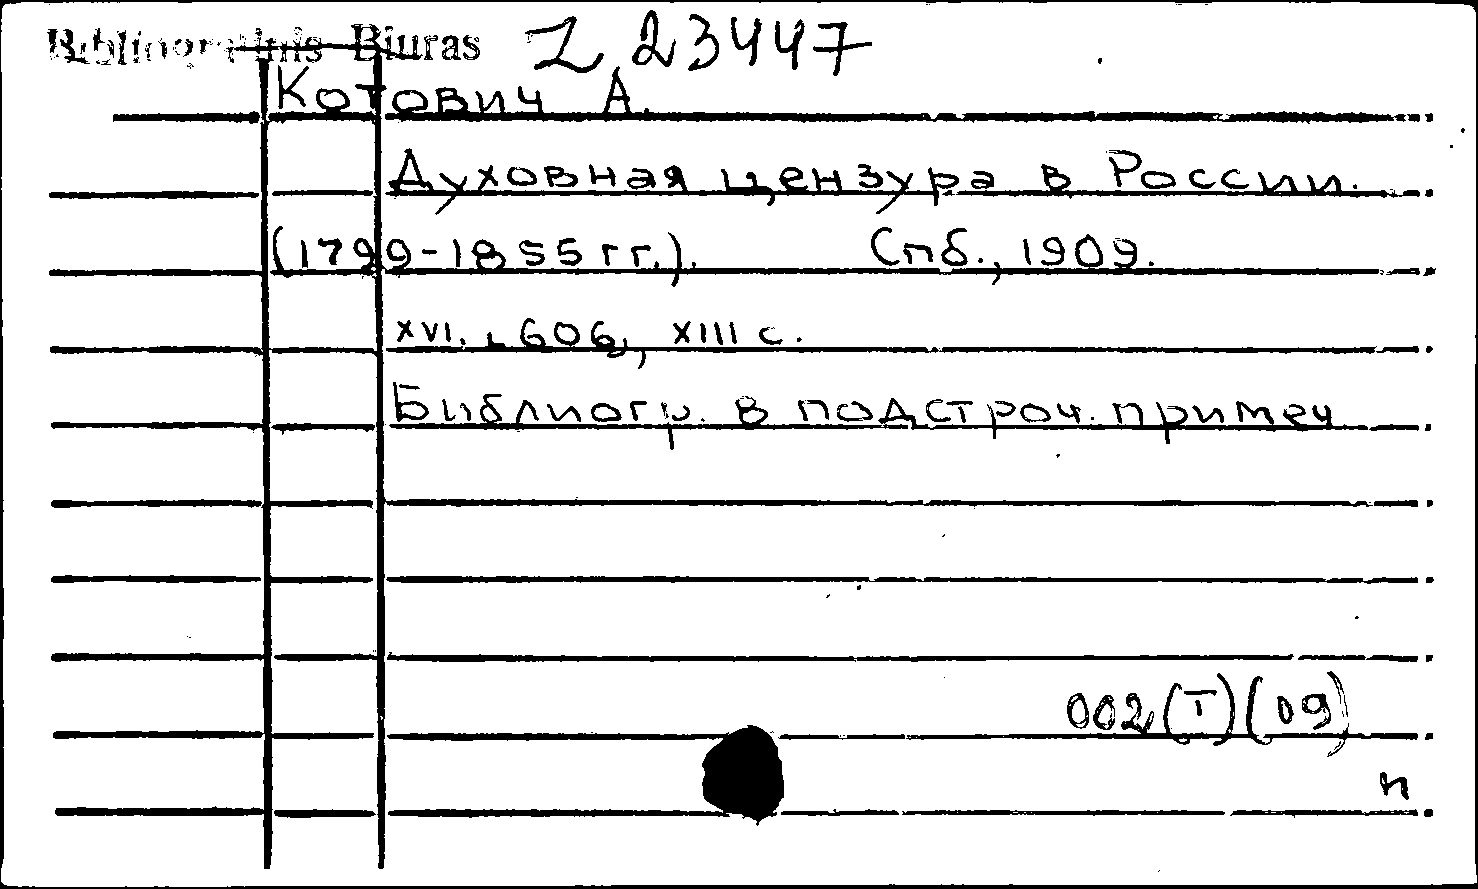 Bibliografinis Biuras Z 23447
Котович А.
Духовная цензура в России.
(1799-1855 гг.). Спб., 1909.
XVI, 606, XIII с.
Библиогр. в подстроч. примеч
002(Т)(09)
п